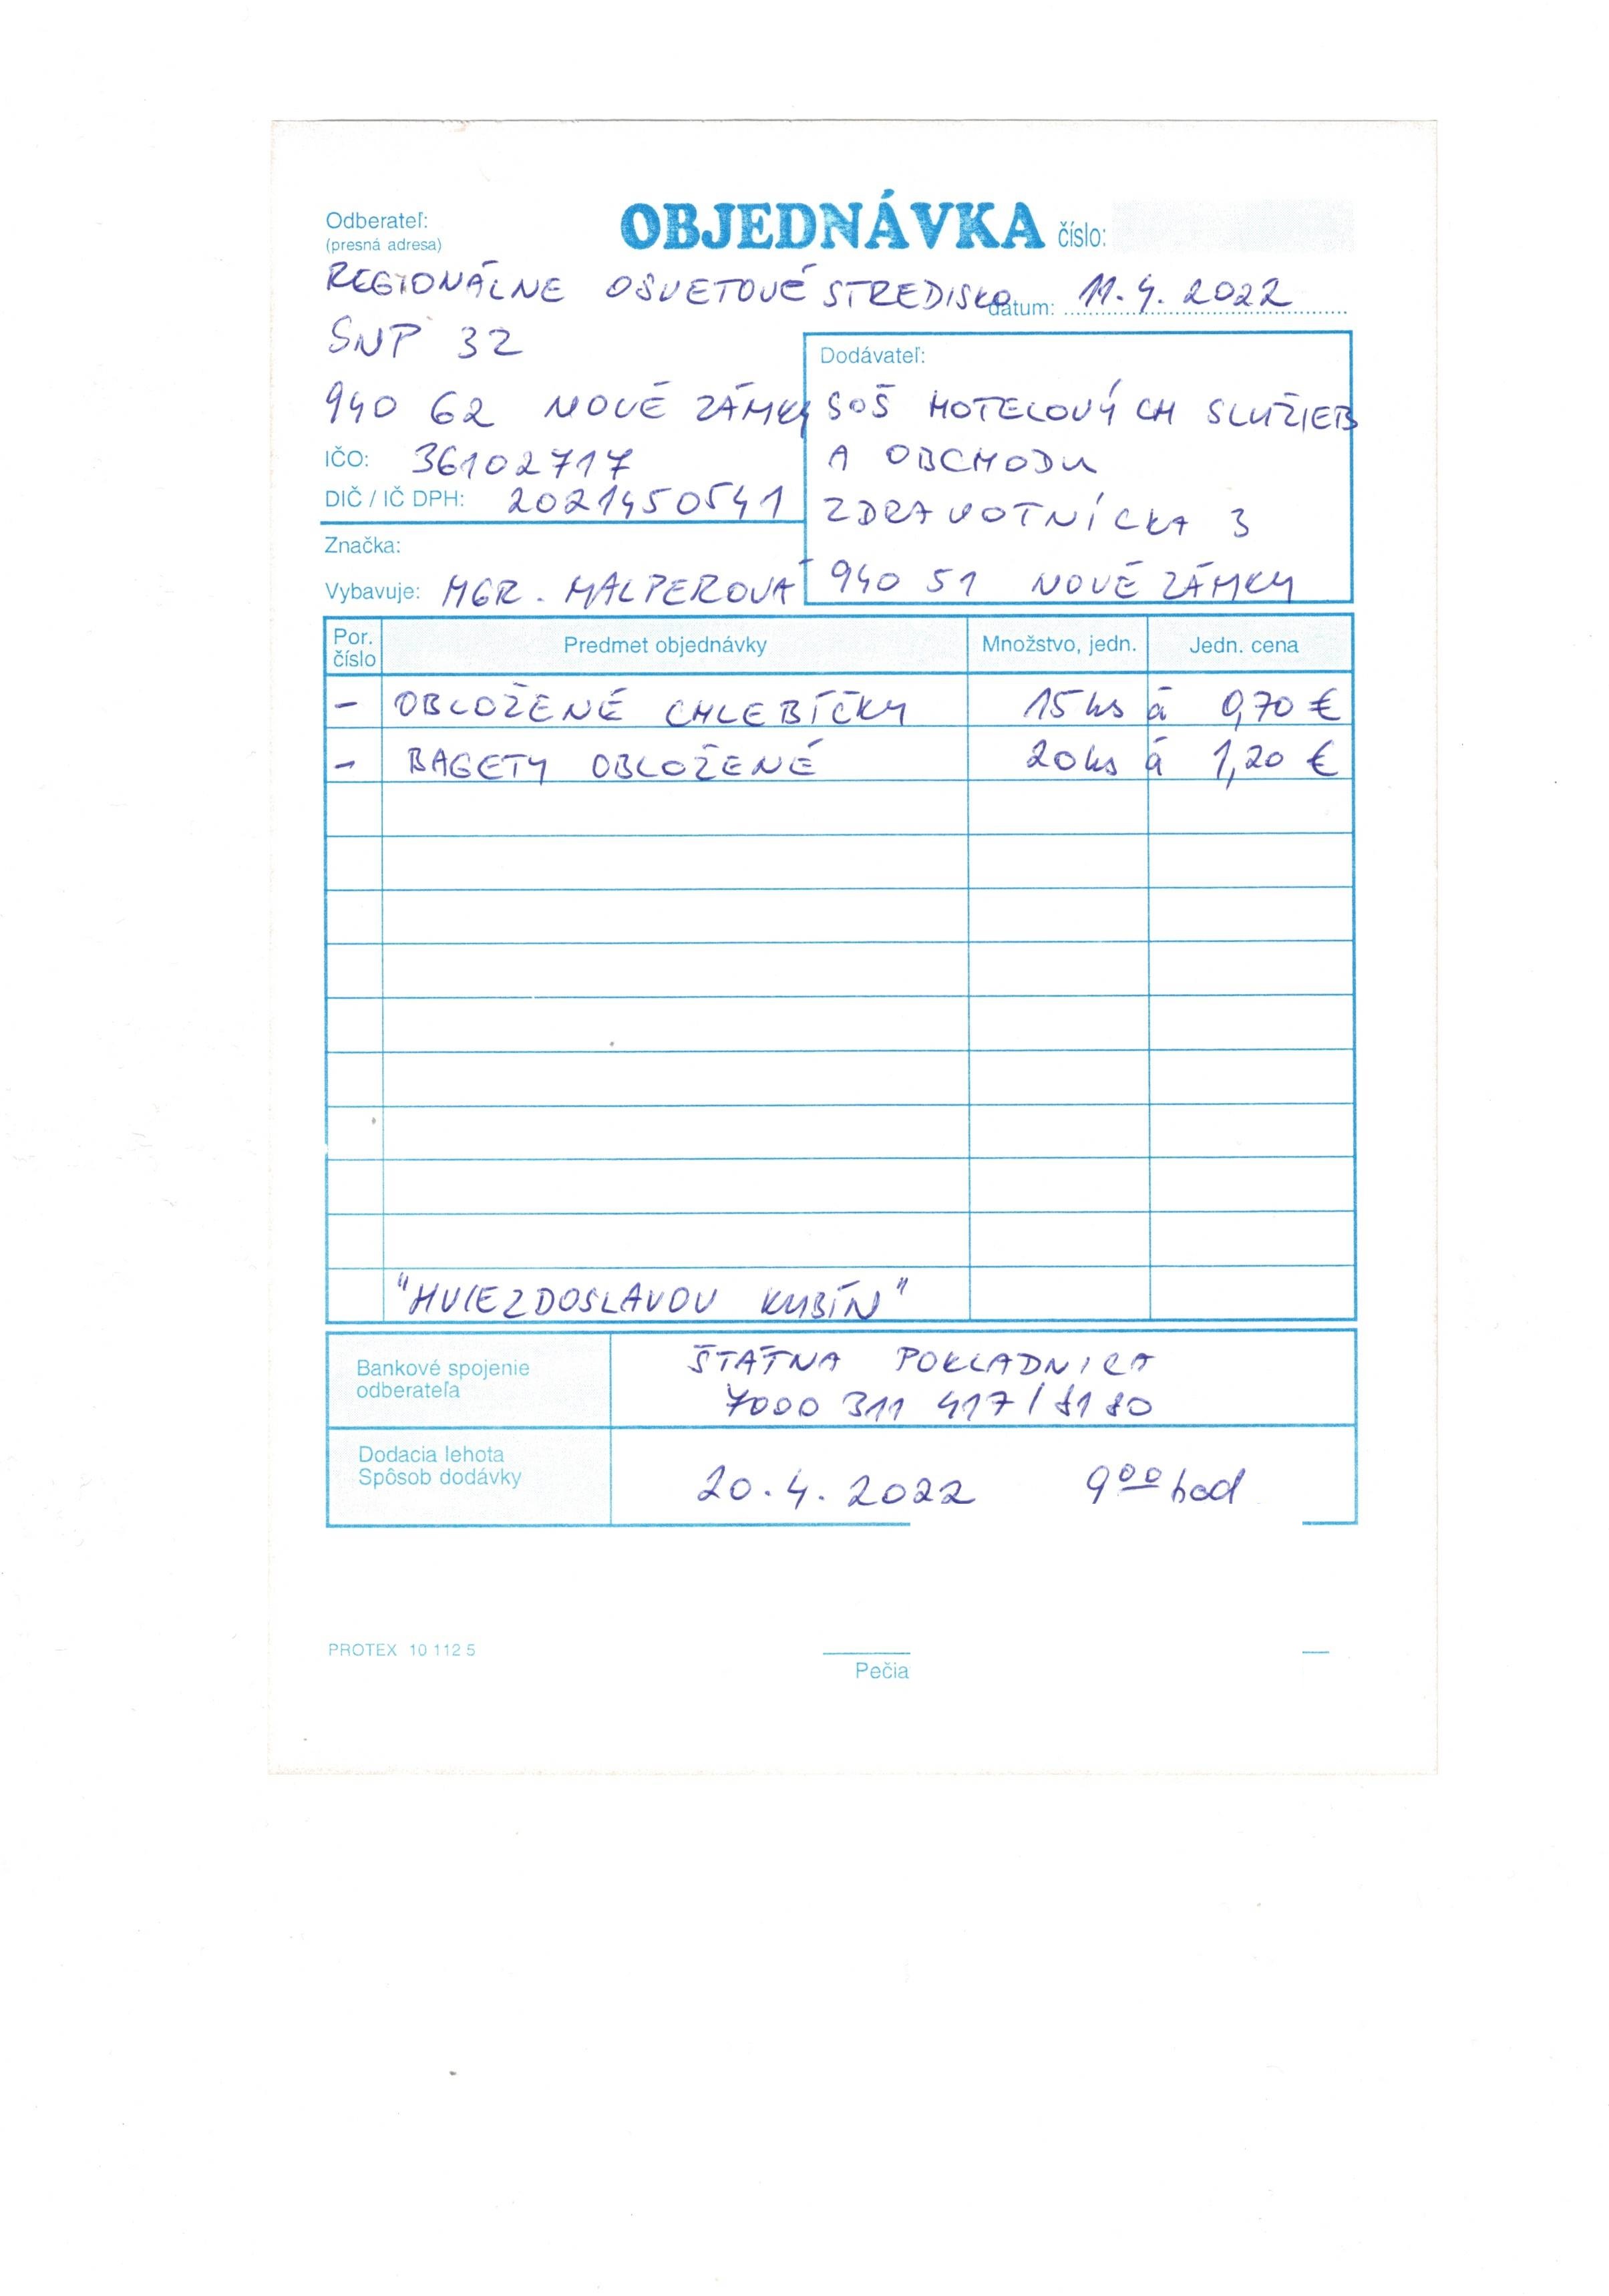 Odberateľ:
(presná adresa)
OBJEDNÁVKA číslo:
REGIONÁLNE OSVETOVÉ STREDISKO
dátum: 11.4.2022
SNP 32
940 62 NOVÉ ZÁMKY
IČO: 36102717
DIČ / IČ DPH: 2021450541
Značka:
Vybavuje: MGR. MALPEROVÁ
Dodávateľ:
SOŠ HOTELOVÝCH SLUŽIEB
A OBCHODU
ZDRAVOTNÍCKA 3
940 51 NOVÉ ZÁMKY
Por. číslo Predmet objednávky Množstvo, jedn. Jedn. cena
- OBLOŽENÉ CHLEBÍČKY 15 ks á 0,70 €
- BAGETY OBLOŽENÉ 20 ks á 1,20 €
"HVIEZDOSLAVOV KUBÍN"
Bankové spojenie
odberateľa
ŠTÁTNA POKLADNICA
7000 311 417/8180
Dodacia lehota
Spôsob dodávky
20.4.2022 900 hod
PROTEX 10 112 5
Pečia